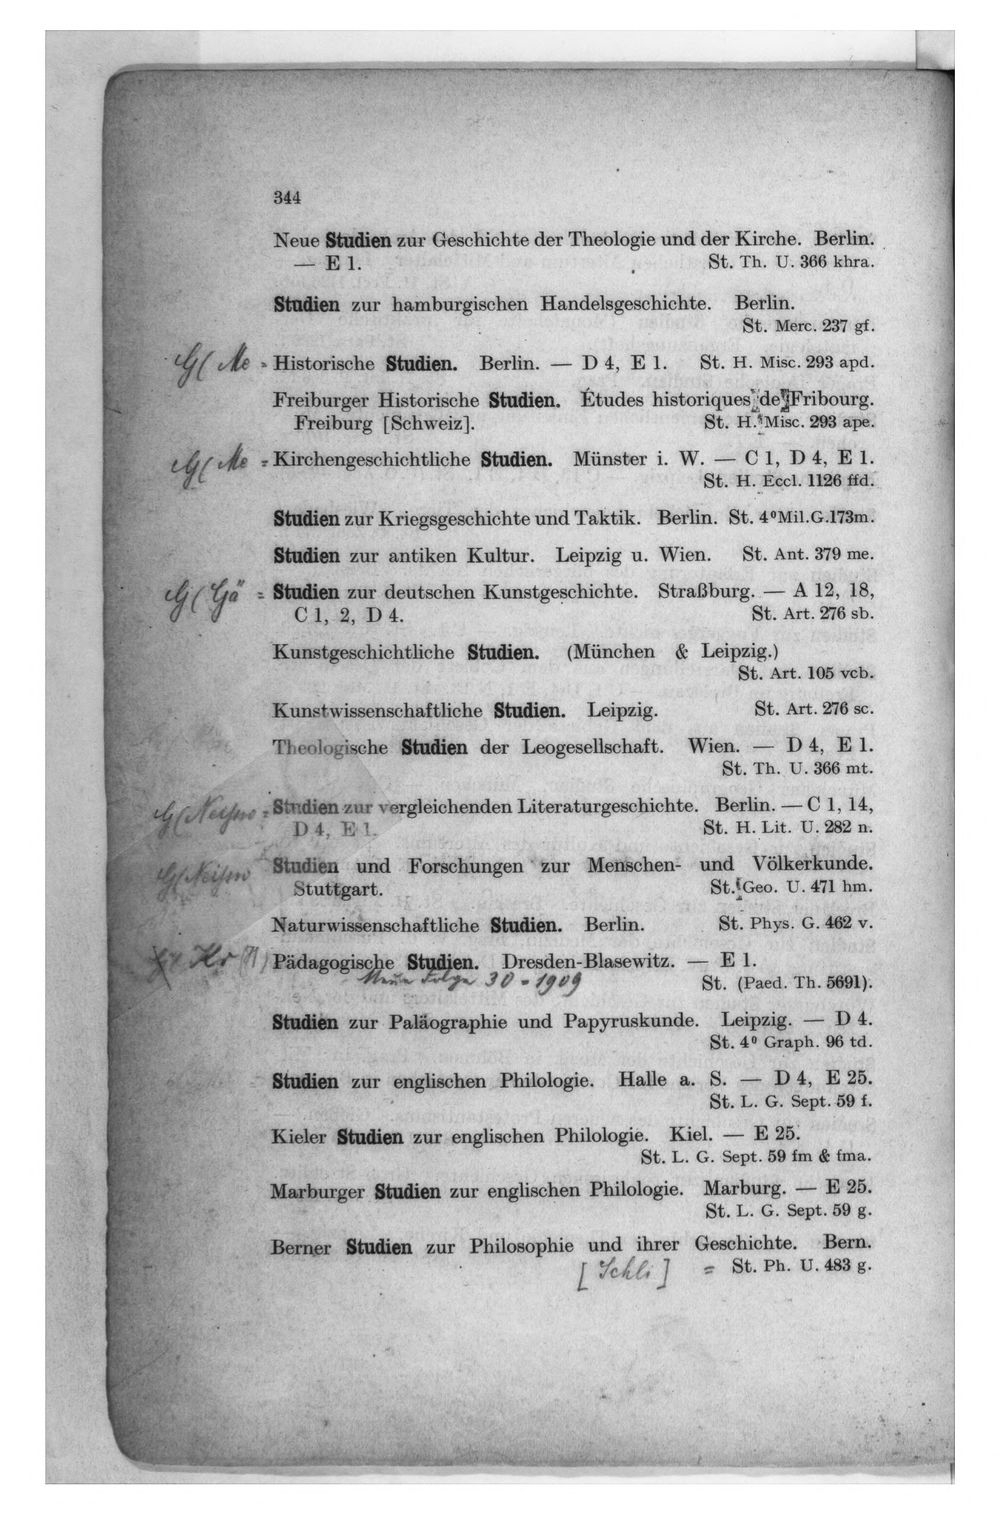 344
Neue Studien zur Geschichte der Theologie und der Kirche. Berlin.
— E 1. St. Th. U. 366 khra.
Studien zur hamburgischen Handelsgeschichte. Berlin.
St. Merc. 237 gf.
G( Me = Historische Studien. Berlin. — D 4, E 1. St. H. Misc. 293 apd.
Freiburger Historische Studien. Études historiques de Fribourg.
Freiburg [Schweiz]. St. H. Misc. 293 ape.
G( Me = Kirchengeschichtliche Studien. Münster i. W. — C 1, D 4, E 1.
St. H. Eccl. 1126 ffd.
Studien zur Kriegsgeschichte und Taktik. Berlin. St. 4⁰ Mil. G. 173m.
Studien zur antiken Kultur. Leipzig u. Wien. St. Ant. 379 me.
G( Gä = Studien zur deutschen Kunstgeschichte. Straßburg. — A 12, 18,
C 1, 2, D 4. St. Art. 276 sb.
Kunstgeschichtliche Studien. (München & Leipzig.)
St. Art. 105 vcb.
Kunstwissenschaftliche Studien. Leipzig. St. Art. 276 sc.
Theologische Studien der Leogesellschaft. Wien. — D 4, E 1.
St. Th. U. 366 mt.
= Studien zur vergleichenden Literaturgeschichte. Berlin. — C 1, 14,
D 4, E 1. St. H. Lit. U. 282 n.
Studien und Forschungen zur Menschen- und Völkerkunde.
Stuttgart. St. Geo. U. 471 hm.
Naturwissenschaftliche Studien. Berlin. St. Phys. G. 462 v.
Pädagogische Studien. Dresden-Blasewitz. — E 1.
Neue Folge 30 - 1909 St. (Paed. Th. 5691).
Studien zur Paläographie und Papyruskunde. Leipzig. — D 4.
St. 4⁰ Graph. 96 td.
Studien zur englischen Philologie. Halle a. S. — D 4, E 25.
St. L. G. Sept. 59 f.
Kieler Studien zur englischen Philologie. Kiel. — E 25.
St. L. G. Sept. 59 fm & fma.
Marburger Studien zur englischen Philologie. Marburg. — E 25.
St. L. G. Sept. 59 g.
Berner Studien zur Philosophie und ihrer Geschichte. Bern.
[Schli] = St. Ph. U. 483 g.